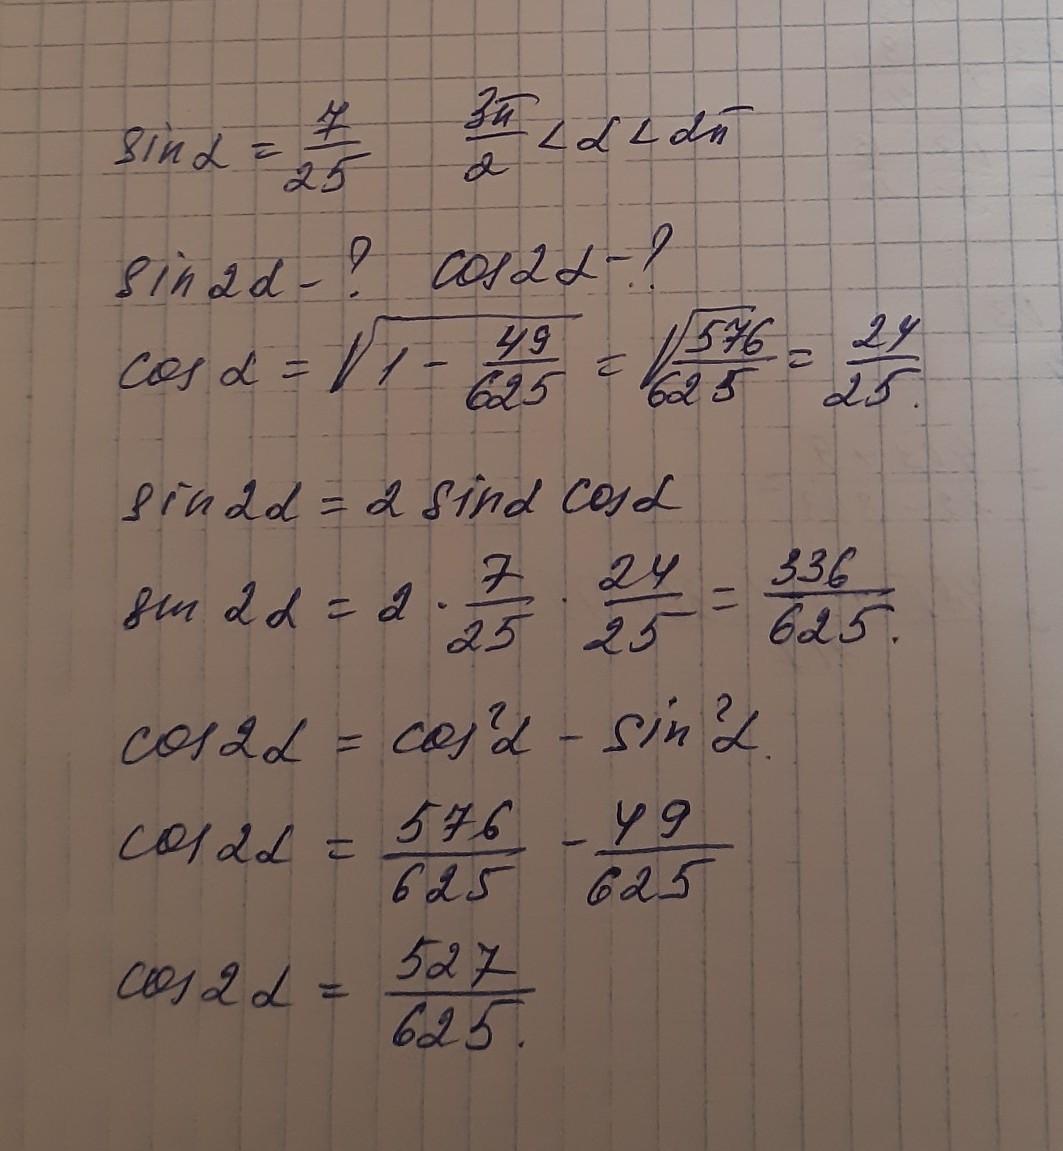 sin α = 7/25   3π/2 < α < 2π
sin 2α - ?   cos 2α - ?
cos α = √(1 - 49/625) = √(576/625) = 24/25.
sin 2α = 2 sin α cos α
sin 2α = 2 · 7/25 · 24/25 = 336/625.
cos 2α = cos²α - sin²α.
cos 2α = 576/625 - 49/625
cos 2α = 527/625.